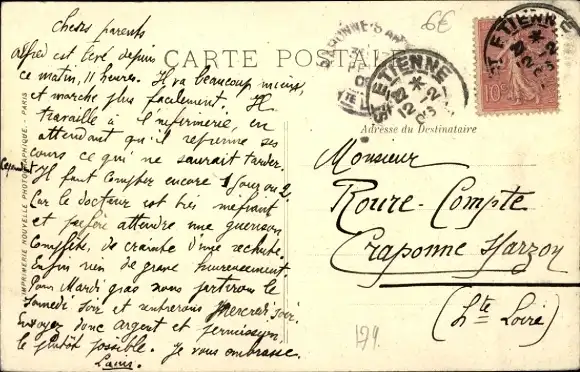 Chers parents
Alfred est levé depuis
ce matin, 11 heures. Il va beaucoup mieux,
et marche plus facilement. Il
travaille à l'infirmerie, en
attendant qu'il reprenne ses
cours ce qui ne saurait tarder.
Cependant
Il faut compter encore 1 jour ou 2.
Car le docteur est très méfiant
et préfère attendre une guérison
complète, de crainte d'une rechute.
Enfin rien de grave heureusement.
Pour Mardi gras nous partirons le
Samedi soir et rentrerons Mercredi soir.
Envoyez donc argent et permission
le plutôt possible. Je vous embrasse.
IMPRIMERIE NOUVELLE PHOTOGRAPHIQUE. - PARIS
CARTE POSTALE
6€
ST ETIENNE
ST ETIENNE
10c
Adresse du Destinataire
Monsieur
Roure-Compte
Craponne s/Arzon
(Hte Loire)
179